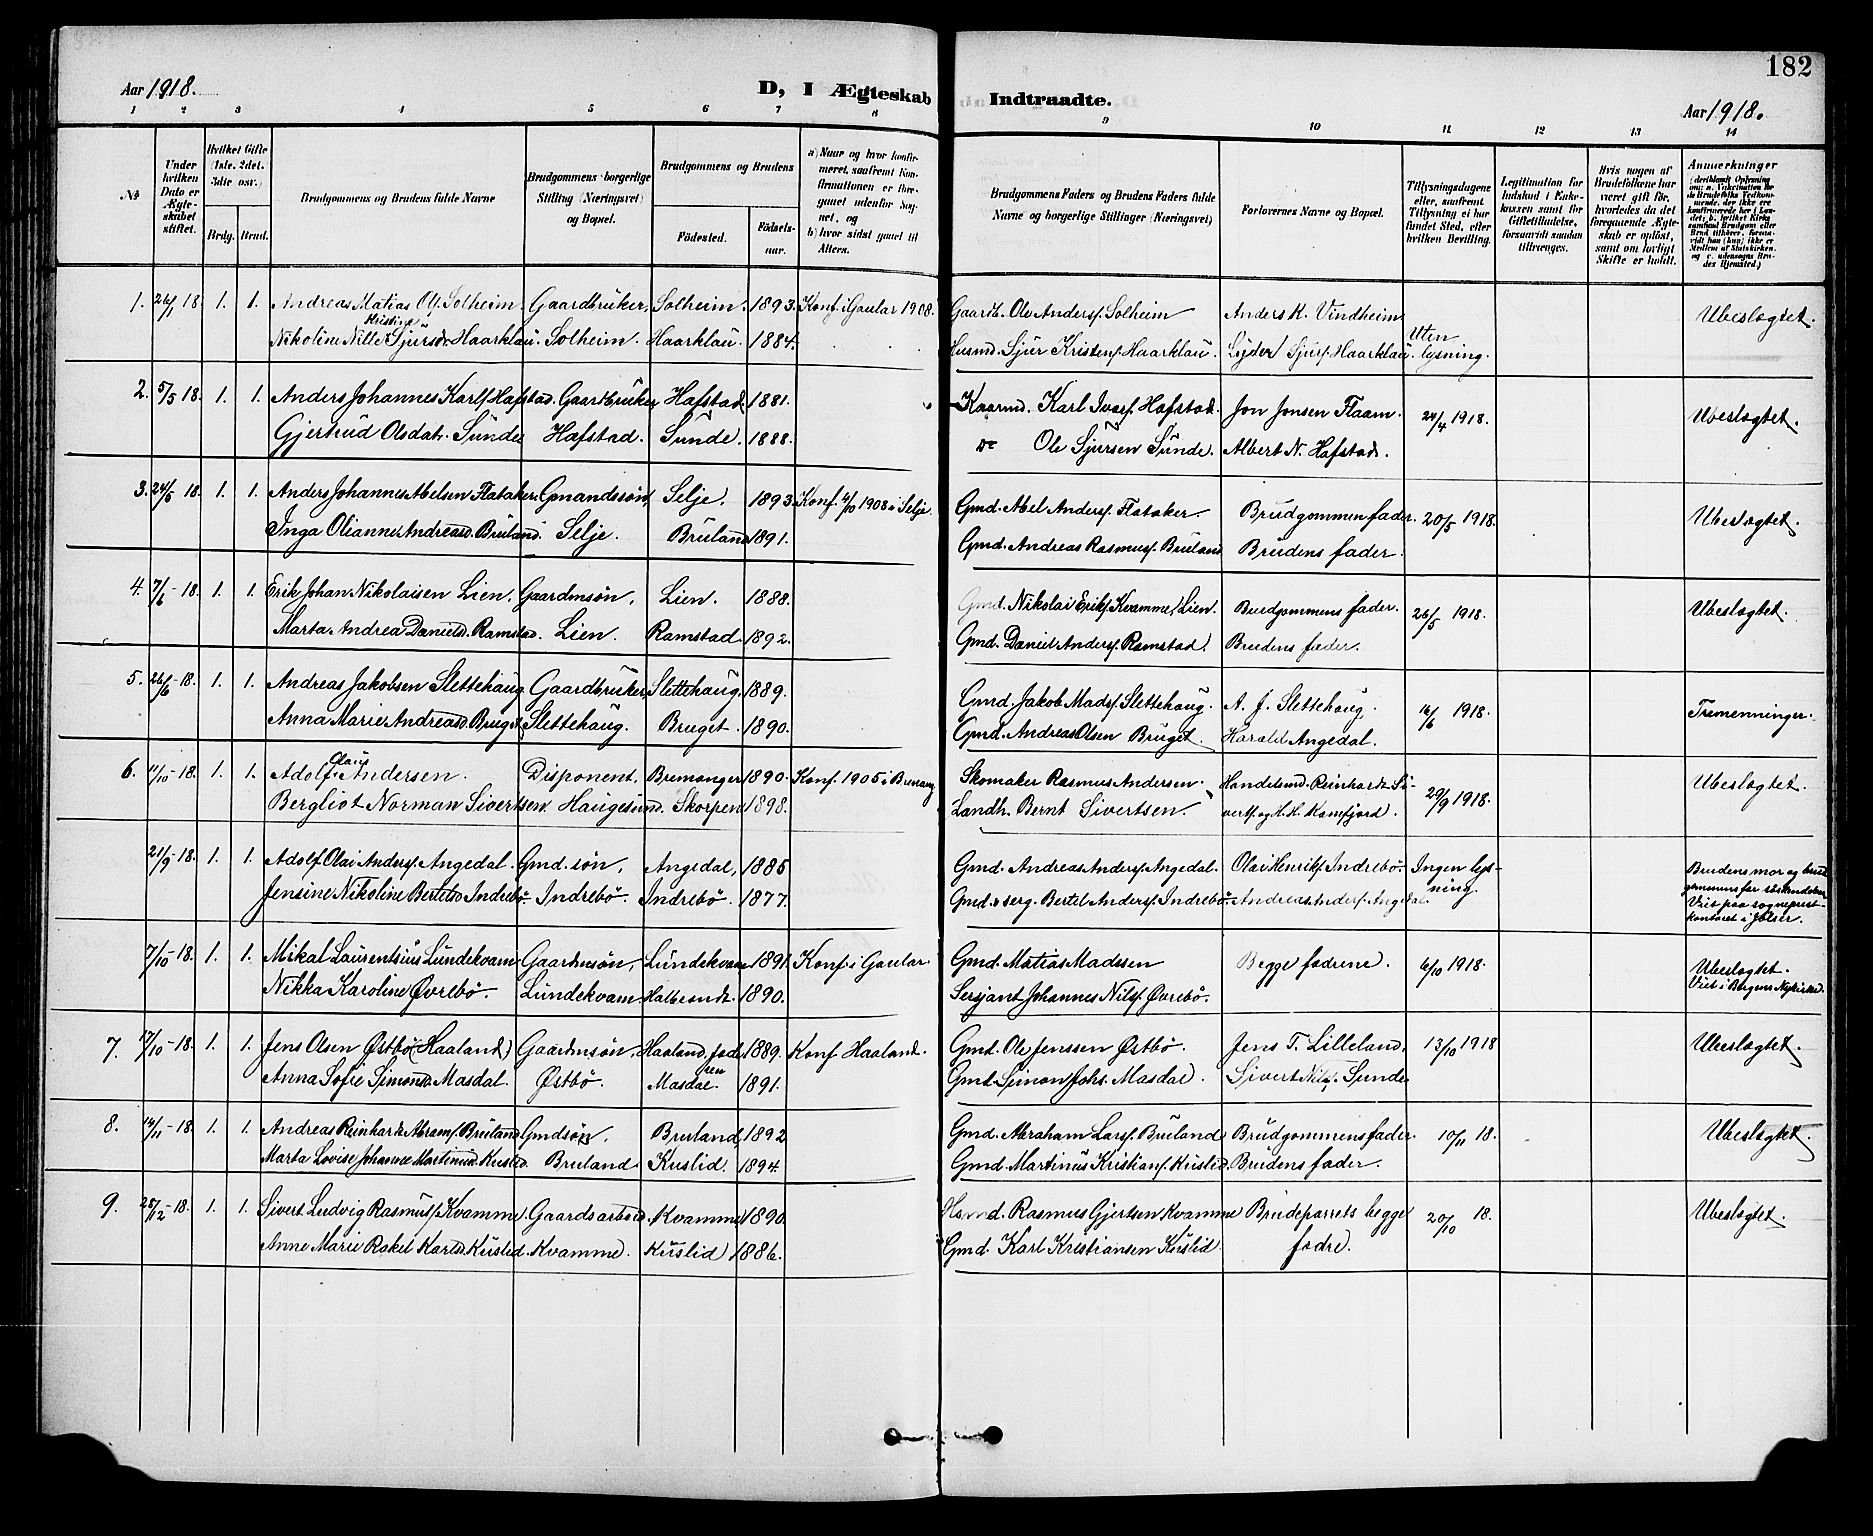 182
Aar 1918. D, I Ægteskab Indtraadte. Aar 1918.
1 2 3 4 5 6 7 8 9 10 11 12 13 14
No
Under hvilken Dato er Ægteskabet stiftet.
Hvilket Gifte (1ste. 2det. 3die osv.)
Brdg. Brud.
Brudgommens og Brudens fulde Navne
Brudgommens borgerlige Stilling (Næringsvei) og Bopæl.
Brudgommens og Brudens
Fødested. Fødselsaar.
a) Naar og hvor konfirmeret, saafremt Konfirmationen er foregaaet udenfor Sognet, og
b) hvor sidst gaaet til Alters.
Brudgommens Faders og Brudens Faders fulde Navne og borgerlige Stillinger (Næringsvei)
Forlovernes Navne og Bopæl.
Tillysningsdagene eller, saafremt Tillysning ei har fundet Sted, efter hvilken Bevilling.
Legitimation for Indskud i Enkekassen samt for Giftetilladelse, forsaavidt saadan tiltrænges.
Hvis nogen af Brudefolkene har været gift før, hvorledes da det foregaaende Ægteskab er opløst, samt om lovligt Skifte er holdt.
Anmærkninger
1. 26/1 18. 1. 1. Andreas Matias Ols. Solheim. Gaardbruker, Solheim. 1893. Konf. i Gaular 1908. Gaardb. Ole Anders. Solheim Anders K. Vindheim Ubeslægtet.
Nikoline Nille Kristine Sjursdr. Haarklau. Solheim. Haarklau. 1884. Husmd. Sjur Kristens. Haarklau. Lyder Sjurs. Haarklau. Uten lysning.
2. 5/5 18. 1. 1. Anders Johannes Karls. Hafstad. Gaardbruker, Hafstad. 1881. Kaarmd. Karl Ivars. Hafstad. Jon Jonsen Flaam. 24/4 1918. Ubeslægtet.
Gjertrud Olsdatr. Sunde Hafstad. Sunde. 1888. Do Ole Sjursen Sunde. Albert N. Hafstad.
3. 24/5 18. 1. 1. Anders Johannes Abelsen Flataker. Gmandssøn, Selje. 1893. Konf. 4/10 1908 i Selje. Gmd. Abel Anders. Flataker Brudgommen fader. 20/5 1918. Ubeslægtet.
Inga Olianne Andreasd. Bruland. Selje. Bruland 1891. Gmd. Andreas Rasmus. Bruland Brudens fader.
4. 7/6 - 18. 1. 1. Erik Johan Nikolaisen Lien. Gaardmsøn, Lien. 1888. Gmd. Nikolai Eriks. Kvamme, Lien. Brudgommens fader. 26/5 1918. Ubeslægtet.
Marta Andrea Danielsd. Ramstad. Lien. Ramstad 1892. Gmd. Daniel Anders. Ramstad. Brudens fader.
5. 26/6 - 18. 1. 1. Andreas Jakobsen Slettehaug Gaardbruker, Slettehaug. 1889. Gmd. Jakob Mads. Slettehaug. A. J. Slettehaug. 16/6 1918. Tremenninger.
Anna Marie Andreasd. Bruget Slettehaug. Bruget. 1890. Gmd. Andreas Olsen Bruget. Harald Angedal.
6. 11/10 - 18. 1. 1. Adolf Olais Andersen. Disponent. Bremanger 1890. Konf. 1905 i Bremang. Skomaker Rasmus Andersen. Handelsmd. Reinhardt Si- 29/9 1918. Ubeslægtet.
Bergliot Norman Sivertsen. Haugesund. Skorpen 1898. Landh. Bernt Sivertsen. verts. og H. H. Ramfjord.
21/9 - 18. 1. 1. Adolf Olai Anders. Angedal. Gmd. søn, Angedal, 1885 Gmd. Andreas Anders. Angedal. Olai Henriks. Indrebø. Ingen lys- Brudens mor og brud-
Jensine Nikoline Bertelsd Indrebø. Indrebø. Indrebø. 1877. Gmd. & serg. Bertel Anders. Indrebø. Andreas Anders. Angedal. ning. gommens far søskendebar
Viet paa sogneprest-
kontoret i Jølster.
7/10 - 18. 1. 1. Mikal Laurentsius Lundekvam Gaardmsøn, Lundekvam 1891. Konf. i Gaular. Gmd. Matias Madssen Begge fædrene. 6/10 1918. Ubeslægtet.
Nikka Karoline Øvrebø. Lundekvam Halbrendt. 1890. Sersjant Johannes Nils. Øvrebø. Viet i Bergens Nykirke.
7. 17/10 - 18. 1. 1. Jens Olsen Østbø (Haaland) Gaardmsøn, Haaland, Jæde- 1889. Konf. Haaland. Gmd. Ole Jenssen Østbø. Jens T. Lilleland, 13/10 1918 Ubeslægtet.
Anna Sofie Simonsd. Masdal. Østbø. ren Masdal. 1891. Gmd. Simon Johs. Masdal. Sivert Nils. Sunde
8. 14/11 - 18. 1. 1. Andreas Reinhardt Abram. Bruland Gmdsøn. Bruland, 1892 Gmd. Abraham Lars. Bruland Brudgommens fader. 10/11 18. Ubeslægtet.
Marta Lovise Johanne Martinusd. Kuslid. Bruland. Kuslid. 1894. Gmd. Martinus Kristians. Kuslid. Brudens fader.
9. 28/12 - 18. 1. 1. Sivert Ludvig Rasmus. Kvamme. Gaardsarbeid. Kvamme 1890. Husmd. Rasmus Gjertsen Kvamme Brudeparrets begge 20/10 18. Ubeslægtet.
Anne Marie Rakel Karlsd. Kuslid. Kvamme. Kuslid 1886. Gmd. Karl Kristiansen Kuslid. fædre.